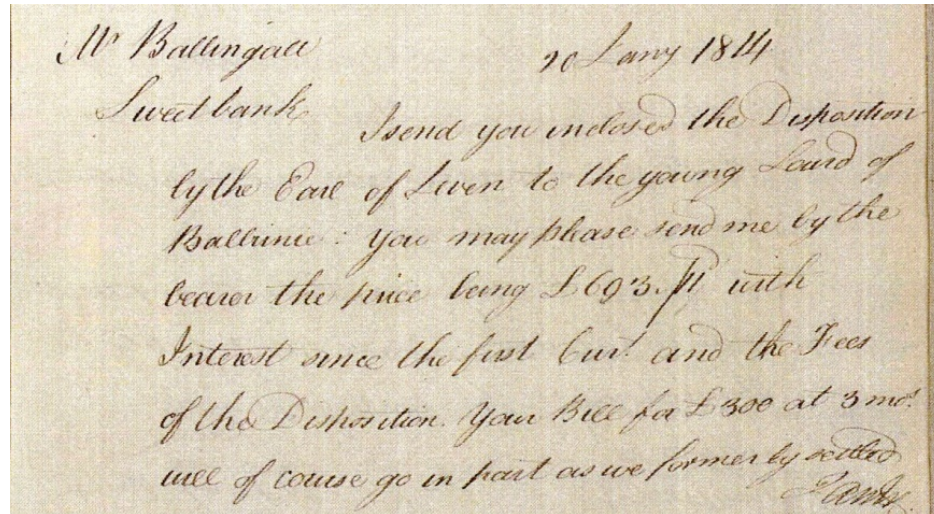 Mr Ballingall 20 Jany 1814
Sweetbank
I send you inclosed the Disposition
by the Earl of Leven to the young Laird of
Balbirnie: You may please send me by the
bearer the price being £693. with
Interest since the first Curt. and the Fees
of the Disposition. Your Bill for £300 at 3 mos.
will of course go in part as we formerly settled